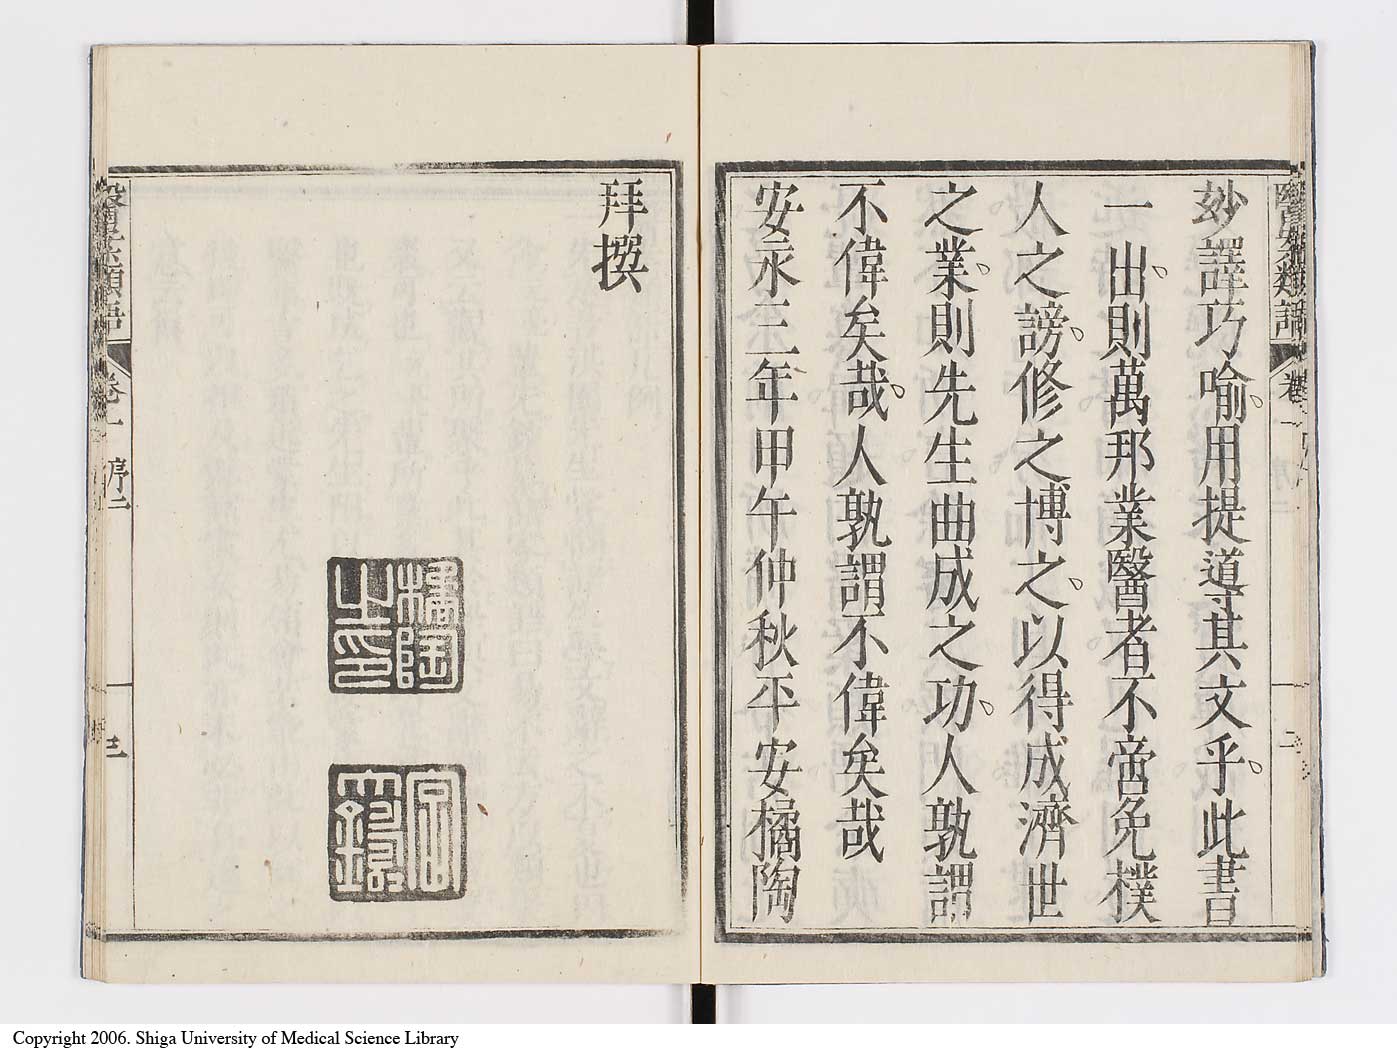 妙譯巧喻用提導其文乎此書
一出則萬邦業醫者不啻免樸
人之謗修之博之以得成濟世
之業則先生曲成之功人孰謂
不偉矣哉人孰謂不偉矣哉
安永三年甲午仲秋平安橘陶
拜撰
橘陶
之印
卷一 序二
三
Copyright 2006. Shiga University of Medical Science Library